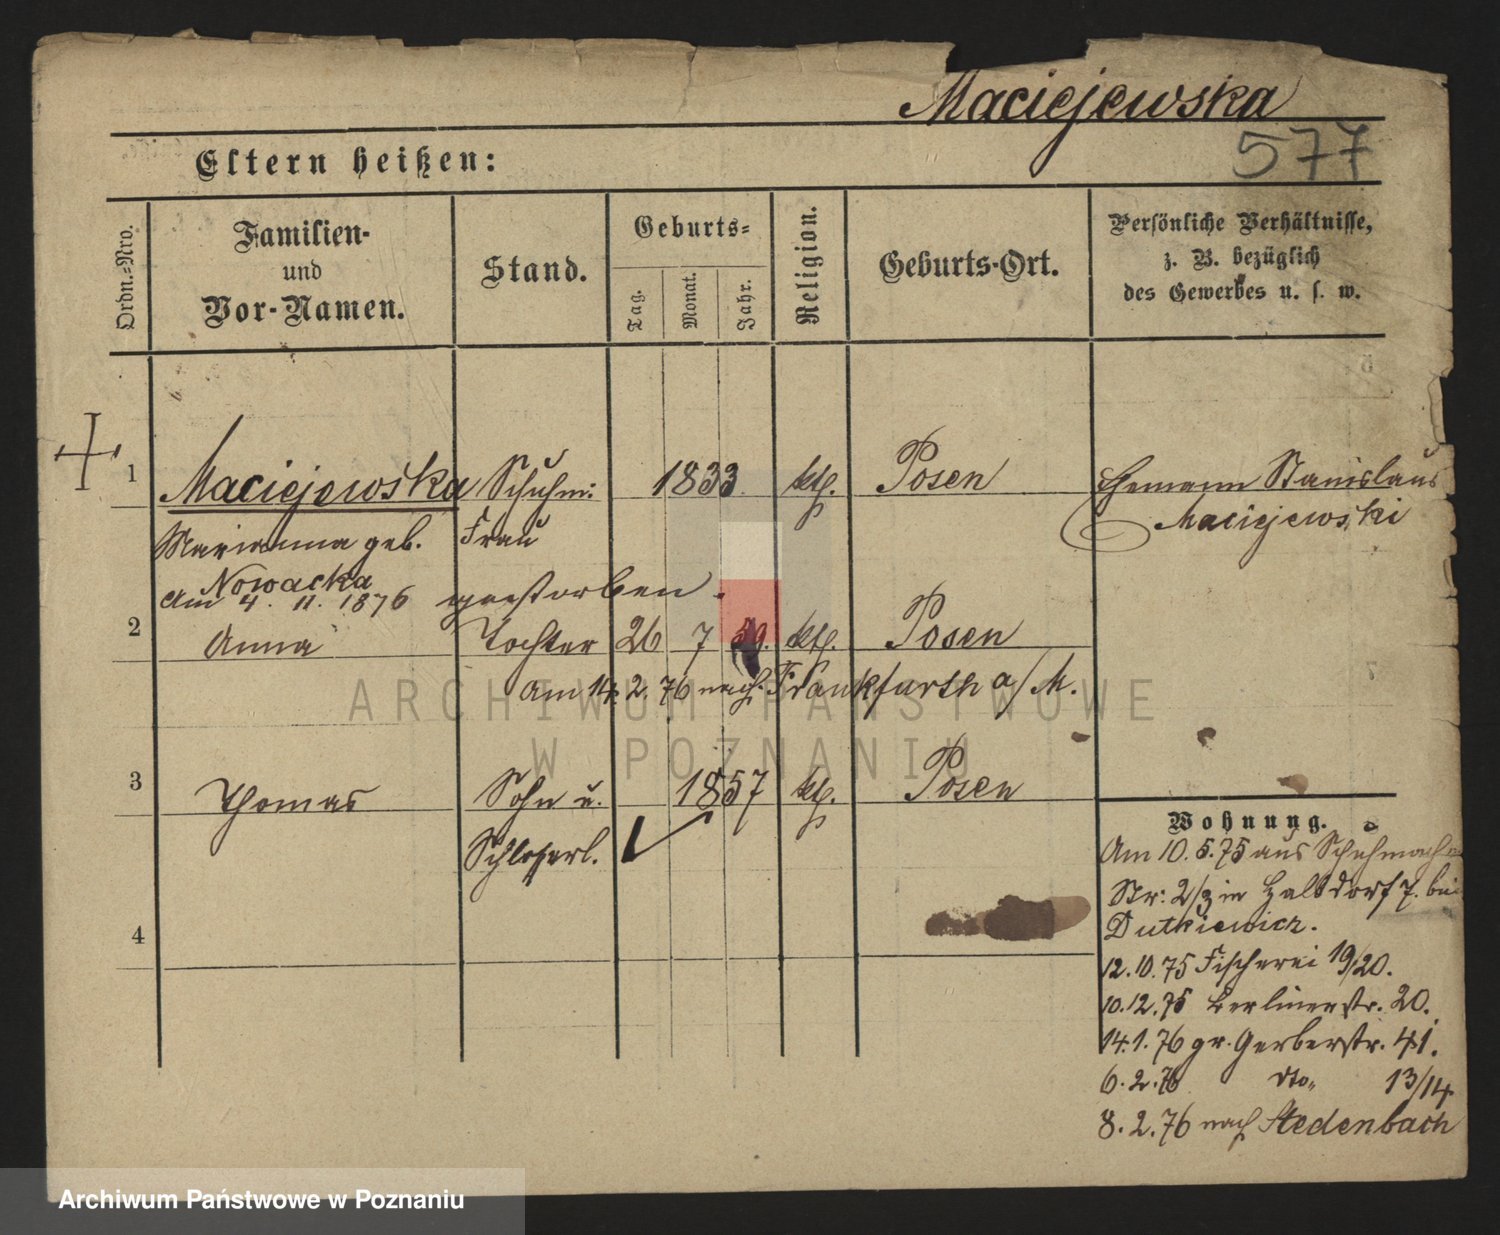 Maciejewska
577
Eltern heißen:
Ordn.-Nro.
Familien-
und
Vor-Namen.
Stand.
Geburts-
Tag.
Monat.
Jahr.
Religion.
Geburts-Ort.
Persönliche Verhältnisse,
z. B. bezüglich
des Gewerbes u. s. w.
1 Maciejewska Schuhm: 1833 kth. Posen Ehemann Stanislaus
Maciejewski
Marianna geb. Frau
Nowacka
Am 4. 11. 1876 gestorben.
2 Anna Tochter 26 7 59. kth. Posen
Am 14. 2. 76 nach Frankfurth a/M.
3 Thomas Sohn u. 1857 kth. Posen
Schlosserl.
4
Wohnung.
Am 10. 5. 75 aus Schuhmach
Str: 2/3 in Halbdorf 7. bei
Dutkiewicz.
12. 10. 75 Fischerei 19/20.
10. 12. 75 Berlinerstr. 20.
14. 1. 76 gr. Gerberstr. 41.
6. 2. 76 dto 13/14
8. 2. 76 nach Stedenbach
ARCHIWUM PAŃSTWOWE
W POZNANIU
Archiwum Państwowe w Poznaniu